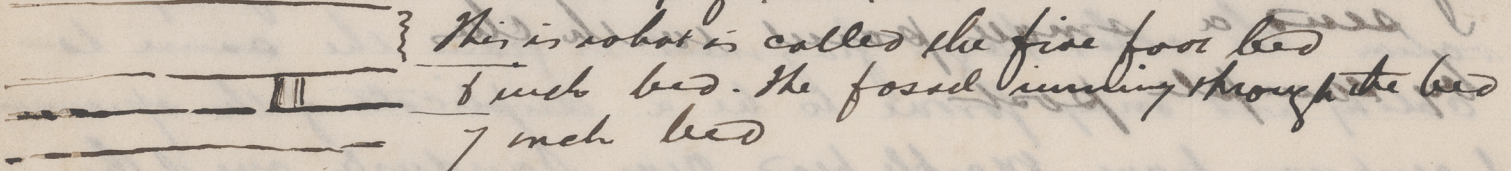 This is what is called the five foot bed
8 inch bed. The fossil running through the bed
7 inch bed